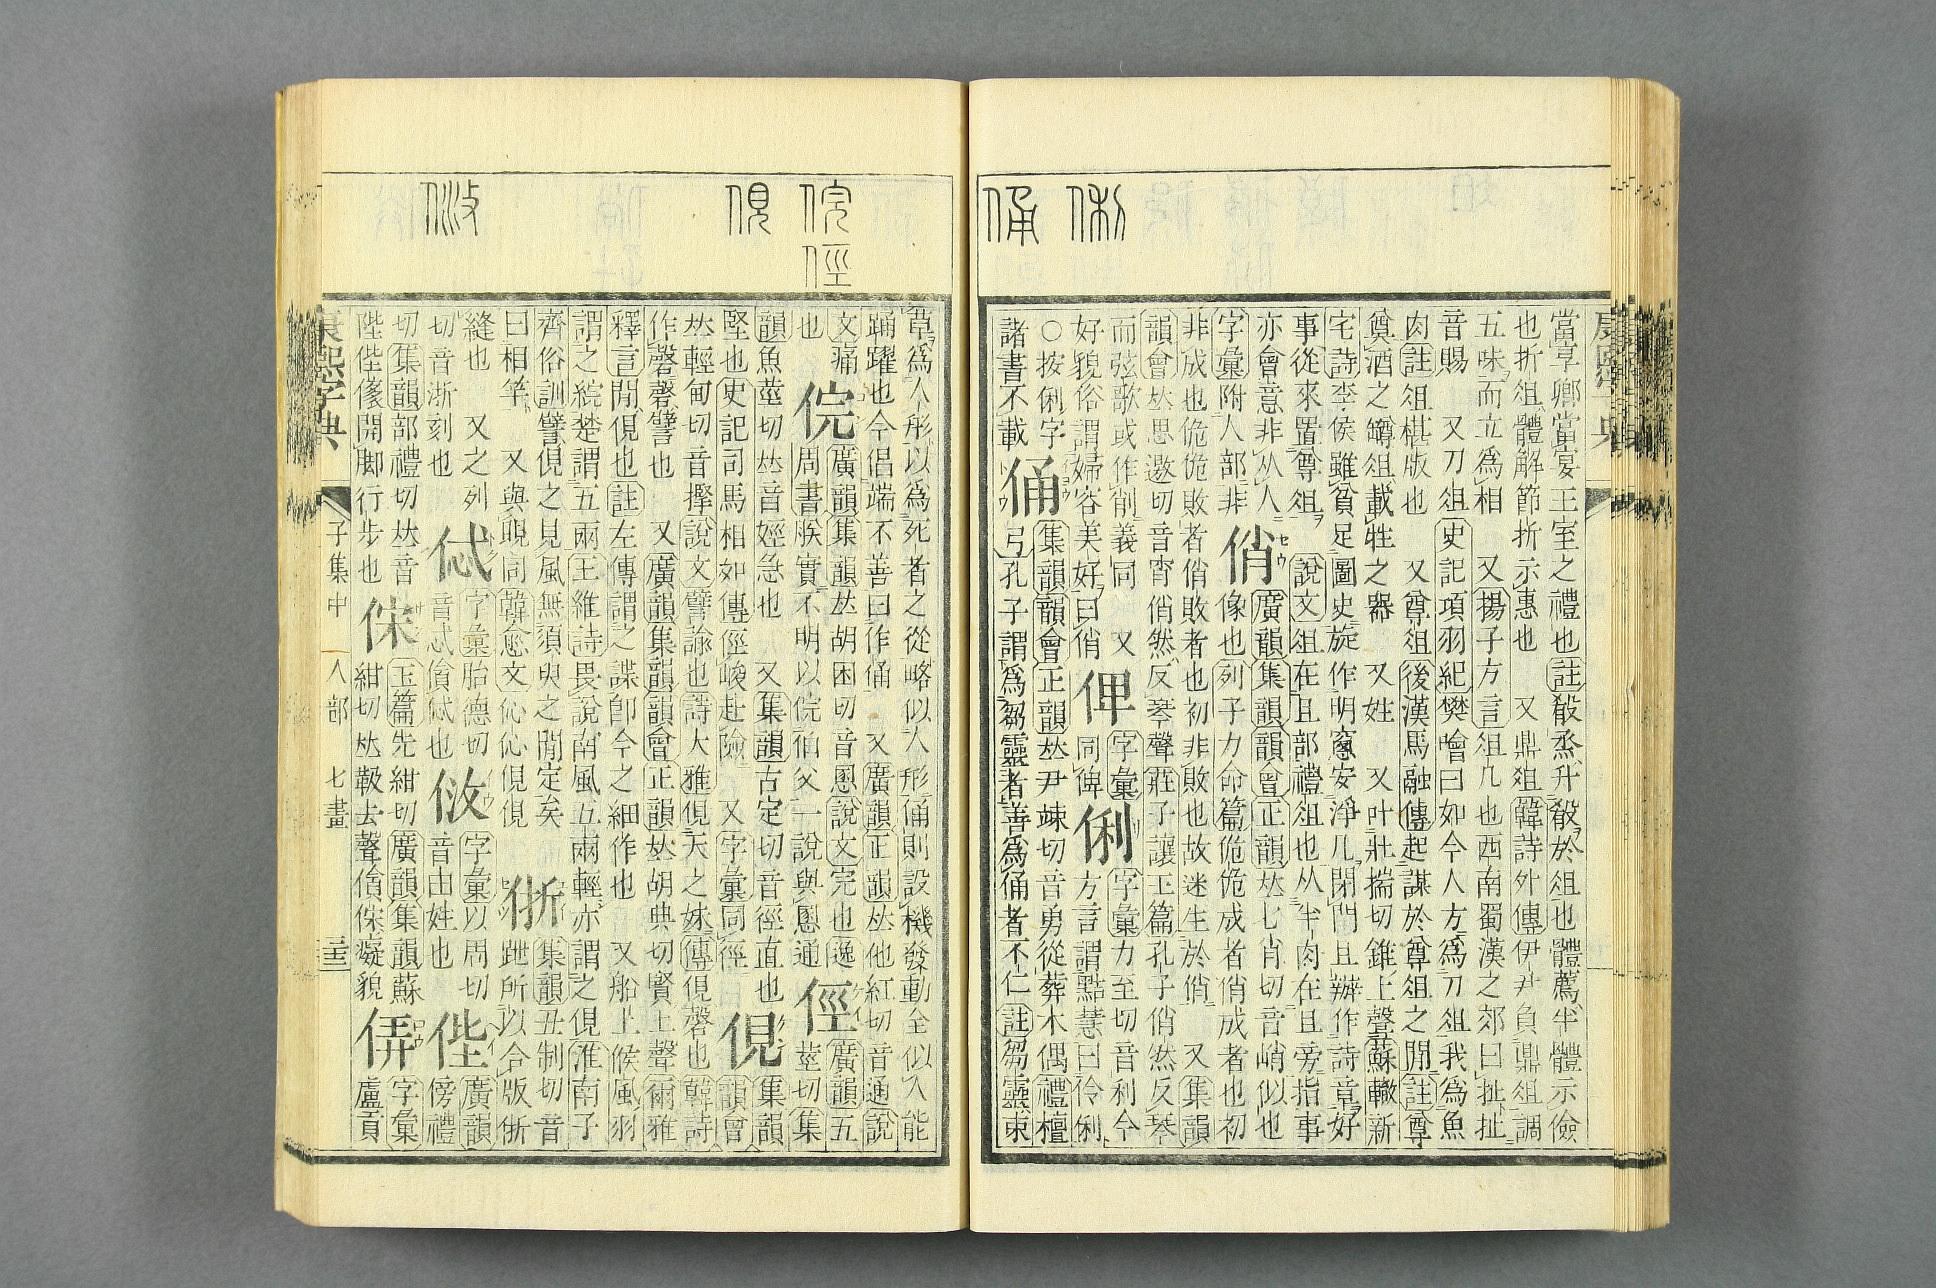 俐
俑
當享卿當宴王室之禮也註殽烝升殽於俎也體薦半體示儉
也折俎體解節折示惠也 又鼎俎韓詩外傳伊尹負鼎俎調
五味而立爲相 又揚子方言俎几也西南蜀漢之郊曰杫杫
音賜 又刀俎史記項羽紀樊噲曰如今人方爲刀俎我爲魚
肉註俎椹版也 又尊俎後漢馬融傳起謀於尊俎之閒註尊
奠酒之罇俎載牲之器 又姓 又叶壯揣切錐上聲蘇轍新
宅詩李侯雖貧足圖史旋作明窻安淨几閉門且辦作詩章好
事從來置尊俎 說文俎在且部禮俎也从半肉在且旁指事
亦會意非从人 俏 廣韻集韻韻會正韻𠀤七肖切音峭似也
字彙附人部非 像也列子力命篇佹佹成者俏成者也初
非成也佹佹敗者俏敗者也初非敗也故迷生於俏 又集韻
韻會𠀤思邀切音宵俏然反琴聲莊子讓王篇孔子俏然反琴
而弦歌或作削義同 又 俾 字彙 俐 字彙力至切音利今
好貌俗謂婦容美好曰俏 同俾 方言謂黠慧曰伶俐
○按俐字 俑 集韻韻會正韻𠀤尹竦切音勇從葬木偶禮檀
諸書不載 弓孔子謂爲芻靈者善爲俑者不仁註芻靈束
康熙字典
俒
俓
俔
草爲人形以爲死者之從略似人形俑則設機發動全似人能
踊躍也今倡端不善曰作俑 又廣韻正韻𠀤他紅切音通說
文痛 俒 廣韻集韻𠀤胡困切音慁說文完也逸 俓 廣韻五
也 周書朕實不明以俒伯父一說與慁通 莖切集
韻魚莖切𠀤音娙急也 又集韻古定切音徑直也 俔 集韻
堅也史記司馬相如傳俓峻赴險 又字彙同徑 韻會
𠀤輕甸切音摼說文譬諭也詩大雅俔天之妹傳俔磬也韓詩
作磬磬譬也 又廣韻集韻韻會正韻𠀤胡典切賢上聲爾雅
釋言閒俔也註左傳謂之諜卽今之細作也 又船上候風羽
謂之綄楚謂五兩王維詩畏說南風五兩輕亦謂之俔淮南子
齊俗訓譬俔之見風無須臾之閒定矣 㑜 集韻丑制切音
曰相竿 又與睍同韓愈文伈伈俔俔 跇所以合版㑜
縫也 又之列 㑥 字彙胎德切 㑜 字彙以周切 俇 廣韻
切音浙刻也 音忒㑥也 音由姓也 傍禮
切集韻部禮切𠀤音 玉篇先紺切廣韻集韻蘇 字彙
陛俇㑥開脚行步也 紺切𠀤㪁去聲癡貌 盧貢
康熙字典 子集中 人部 七畫